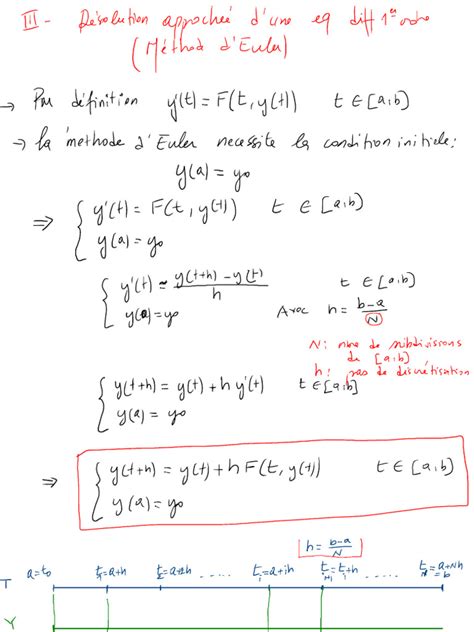 III - Résolution approchée d'une eq diff 1er ordre
(Méthode d'Euler)
→ Par définition y'(t) = F(t, y(t)) t ∈ [a;b]
→ la méthode d'Euler necessite la condition initiale:
y(a) = y0
⇒ { y'(t) = F(t, y(t)) t ∈ [a;b]
y(a) = y0
{ y'(t) ≃ y(t+h) - y(t) / h t ∈ [a;b]
y(a) = y0 Avec h = b-a / N
N: nbre de subdivisions
de [a;b]
h: pas de discrétisation
{ y(t+h) = y(t) + h y'(t) t ∈ [a;b]
y(a) = y0
⇒ { y(t+h) = y(t) + h F(t, y(t)) t ∈ [a;b]
y(a) = y0
h = b-a / N
T a=t0 t1=a+h t2=a+2h ..... ti=a+ih ti+1=ti+h ..... tN=a+Nh
=b
Y